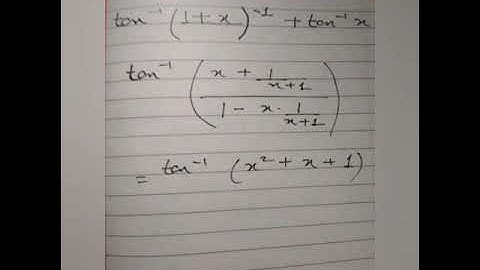 tan⁻¹ (1+x)⁻¹ + tan⁻¹ x
tan⁻¹ ( (x + 1/(x+1)) / (1 - x · 1/(x+1)) )
= tan⁻¹ (x² + x + 1)